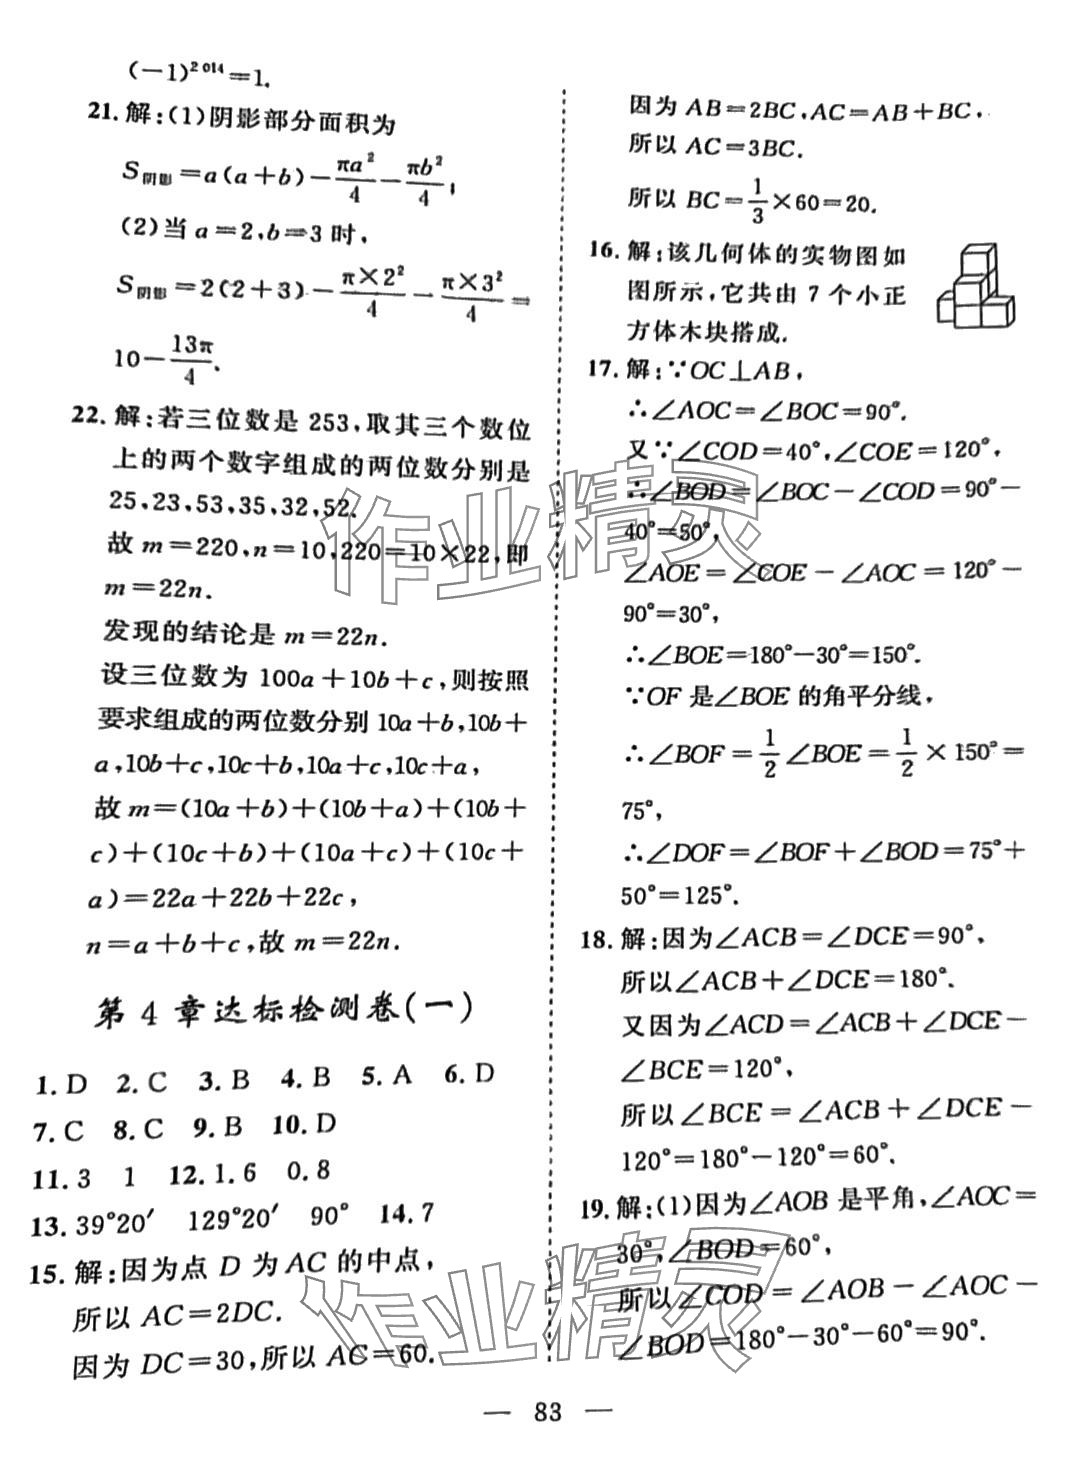 (－1)²⁰¹⁴＝1.
21. 解:(1)阴影部分面积为
S阴影＝a(a＋b)－πa²/4－πb²/4;
(2)当 a＝2,b＝3 时,
S阴影＝2(2＋3)－π×2²/4－π×3²/4＝
10－13π/4.
22. 解:若三位数是 253,取其三个数位
上的两个数字组成的两位数分别是
25,23,53,35,32,52.
故 m＝220,n＝10,220＝10×22,即
m＝22n.
发现的结论是 m＝22n.
设三位数为 100a＋10b＋c,则按照
要求组成的两位数分别 10a＋b,10b＋
a,10b＋c,10c＋b,10a＋c,10c＋a,
故 m＝(10a＋b)＋(10b＋a)＋(10b＋
c)＋(10c＋b)＋(10a＋c)＋(10c＋
a)＝22a＋22b＋22c,
n＝a＋b＋c,故 m＝22n.
第 4 章达标检测卷(一)
1. D 2. C 3. B 4. B 5. A 6. D
7. C 8. C 9. B 10. D
11. 3 1 12. 1.6 0.8
13. 39°20′ 129°20′ 90° 14. 7
15. 解:因为点 D 为 AC 的中点,
所以 AC＝2DC.
因为 DC＝30,所以 AC＝60.
因为 AB＝2BC,AC＝AB＋BC,
所以 AC＝3BC.
所以 BC＝1/3×60＝20.
16. 解:该几何体的实物图如
图所示,它共由 7 个小正
方体木块搭成.
17. 解:∵OC⊥AB,
∴∠AOC＝∠BOC＝90°.
又∵∠COD＝40°,∠COE＝120°,
∴∠BOD＝∠BOC－∠COD＝90°－
40°＝50°,
∠AOE＝∠COE－∠AOC＝120°－
90°＝30°,
∴∠BOE＝180°－30°＝150°.
∵OF 是∠BOE 的角平分线,
∴∠BOF＝1/2∠BOE＝1/2×150°＝
75°,
∴∠DOF＝∠BOF＋∠BOD＝75°＋
50°＝125°.
18. 解:因为∠ACB＝∠DCE＝90°,
所以∠ACB＋∠DCE＝180°.
又因为∠ACD＝∠ACB＋∠DCE－
∠BCE＝120°,
所以∠BCE＝∠ACB＋∠DCE－
120°＝180°－120°＝60°.
19. 解:(1)因为∠AOB 是平角,∠AOC＝
30°,∠BOD＝60°,
所以∠COD＝∠AOB－∠AOC－
∠BOD＝180°－30°－60°＝90°.
— 83 —
作业精灵
作业精灵